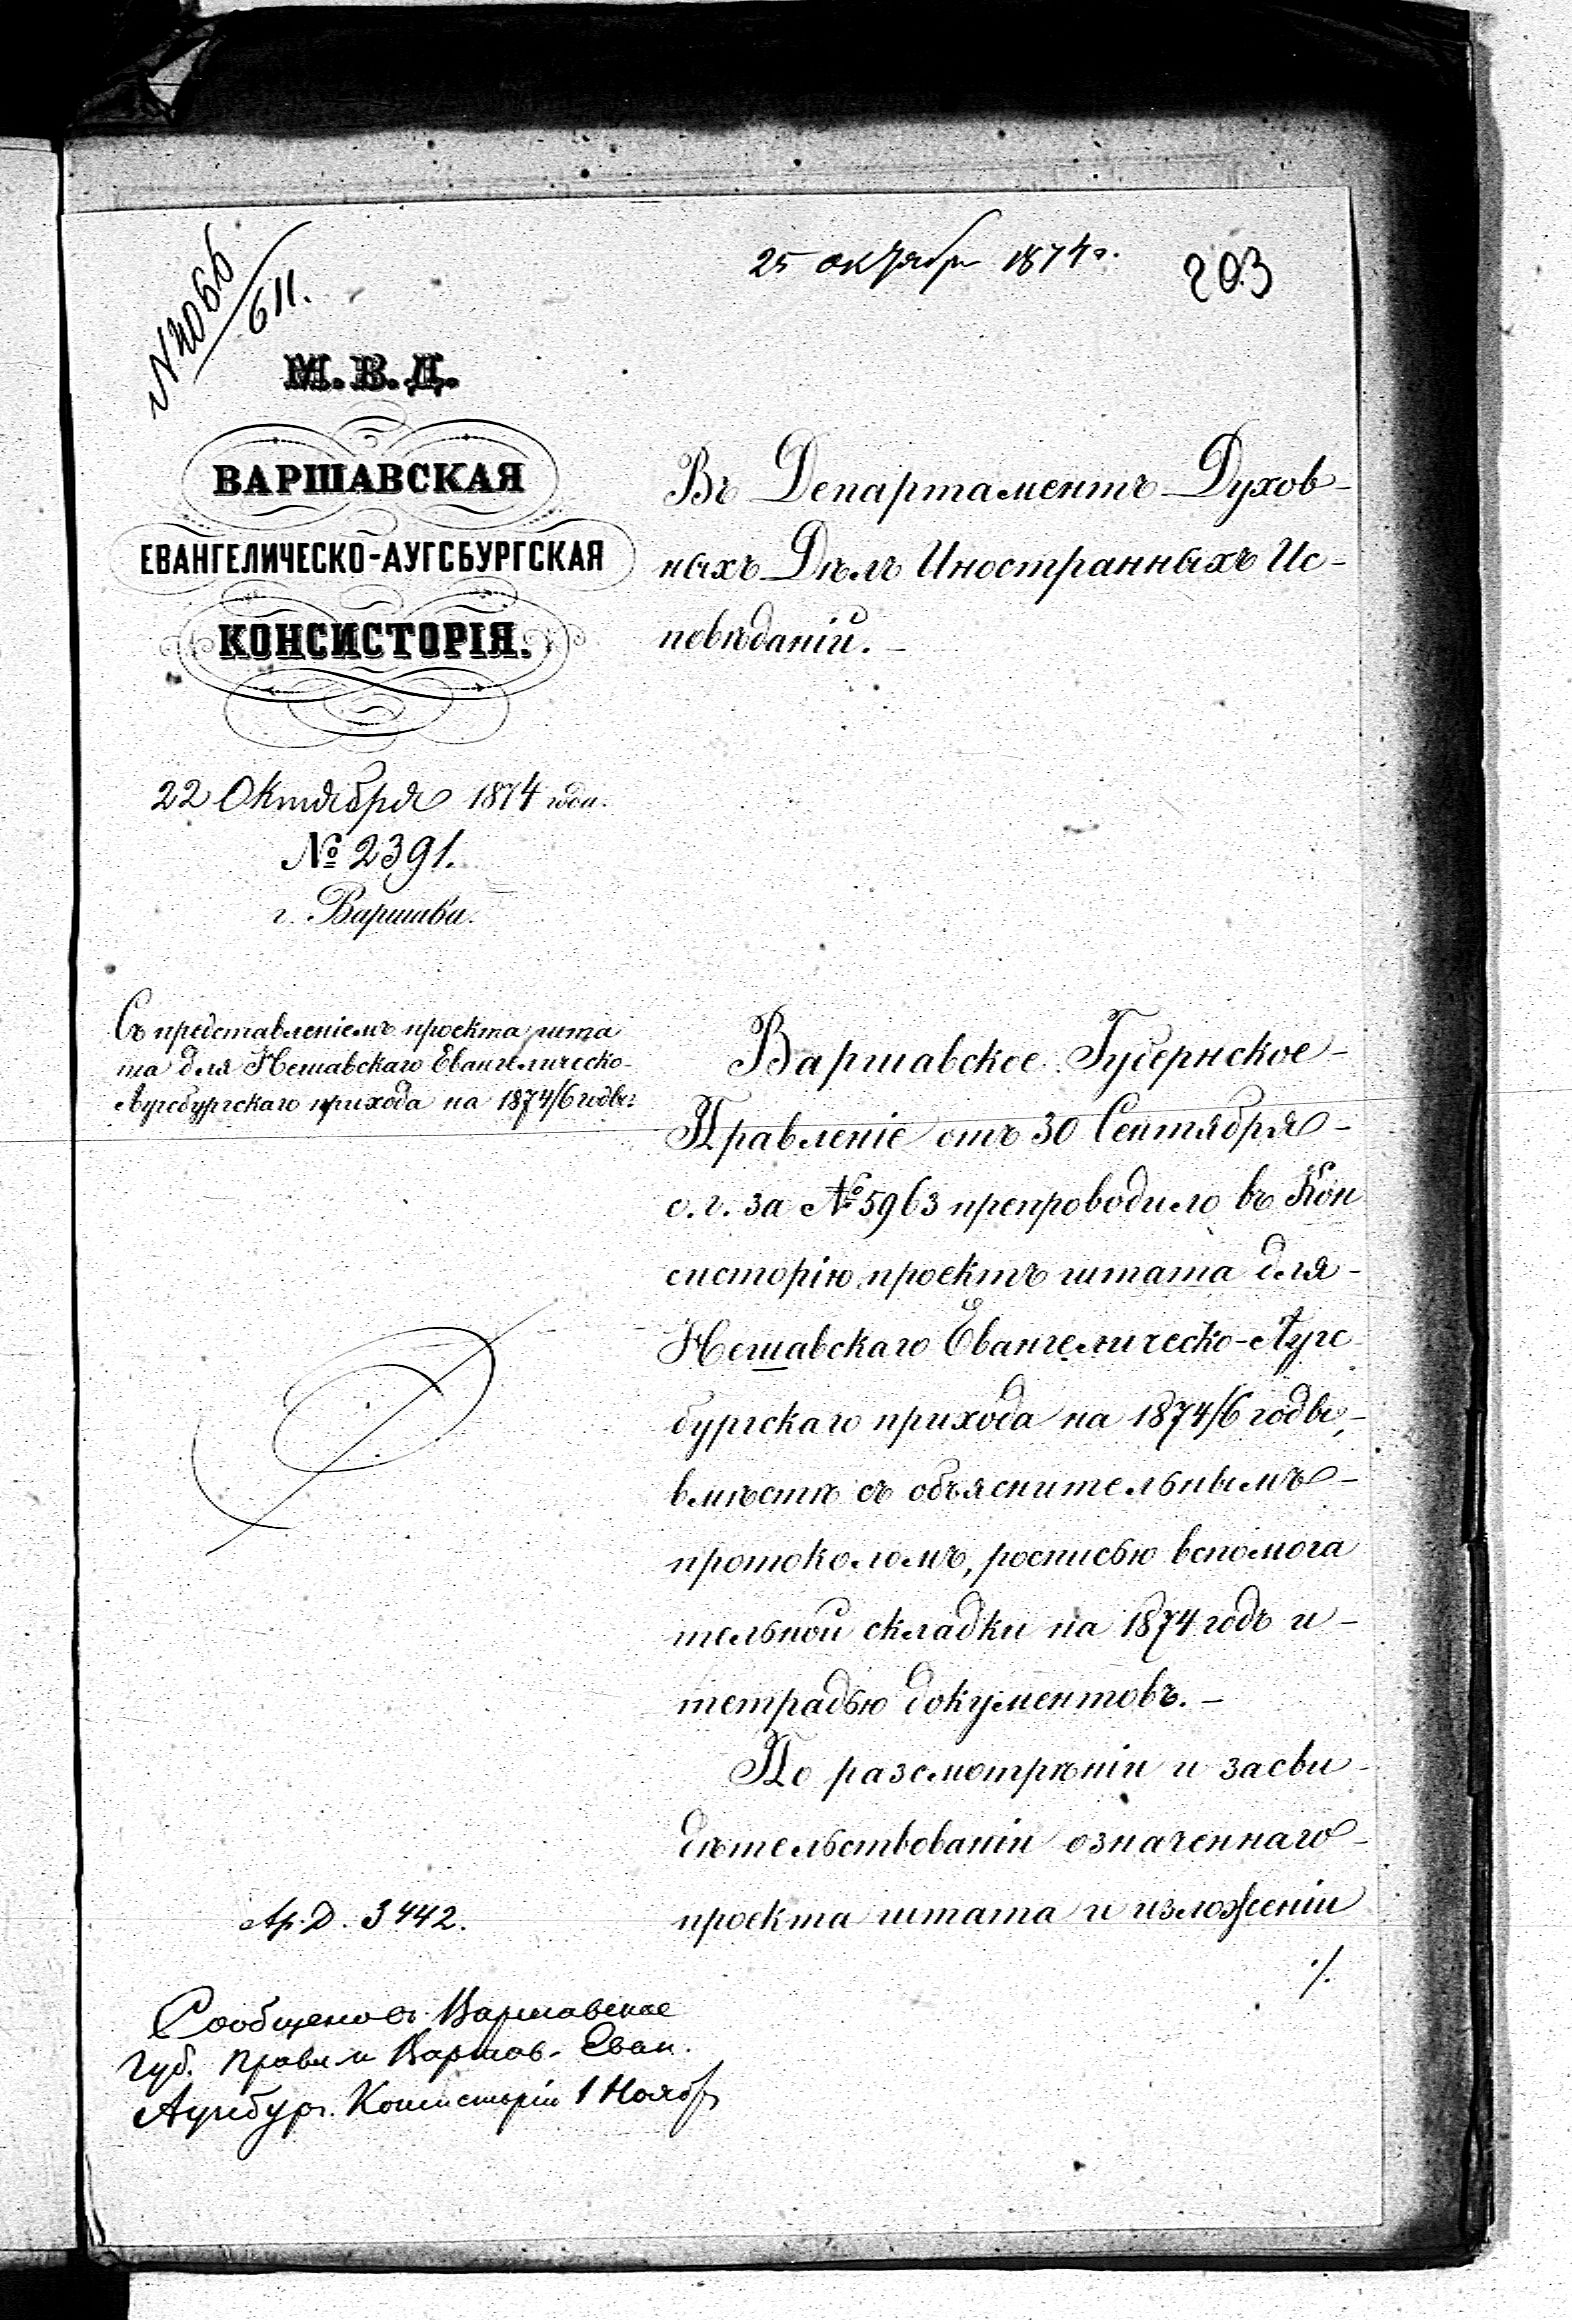 25 октября 1874 г.
203
№ 4066/611.
М. В. Д.
ВАРШАВСКАЯ
ЕВАНГЕЛИЧЕСКО-АУГСБУРГСКАЯ
КОНСИСТОРІЯ.
22 Октября 1874 года.
№ 2391.
г. Варшава.
Съ представленіемъ проекта шта
та для Нешавскаго Евангелическо-
Аугсбургскаго прихода на 1874/6 годы.
Ар. Д. 3442.
Сообщено въ Варшавское
Губ. Правл. и Варшав. Еван.
Аугсбург. Консисторіи 1 Ноябр
Въ Департаментъ Духов-
ныхъ Дѣлъ Иностранныхъ Ис-
повѣданій. -
Варшавское Губернское -
Правленіе отъ 30 Сентября -
с. г. за № 5963 препроводило въ Кон
систорію, проектъ штата для -
Нешавскаго Евангелическо-Аугс
бургскаго прихода на 1874/6 годы, -
вмѣстѣ съ объяснительнымъ -
протоколомъ, росписью вспомога
тельной складки на 1874 годъ и -
тетрадью документовъ. -
По разсмотрѣніи и засви-
дѣтельствованіи означеннаго -
проекта штата и изложеніи
./.